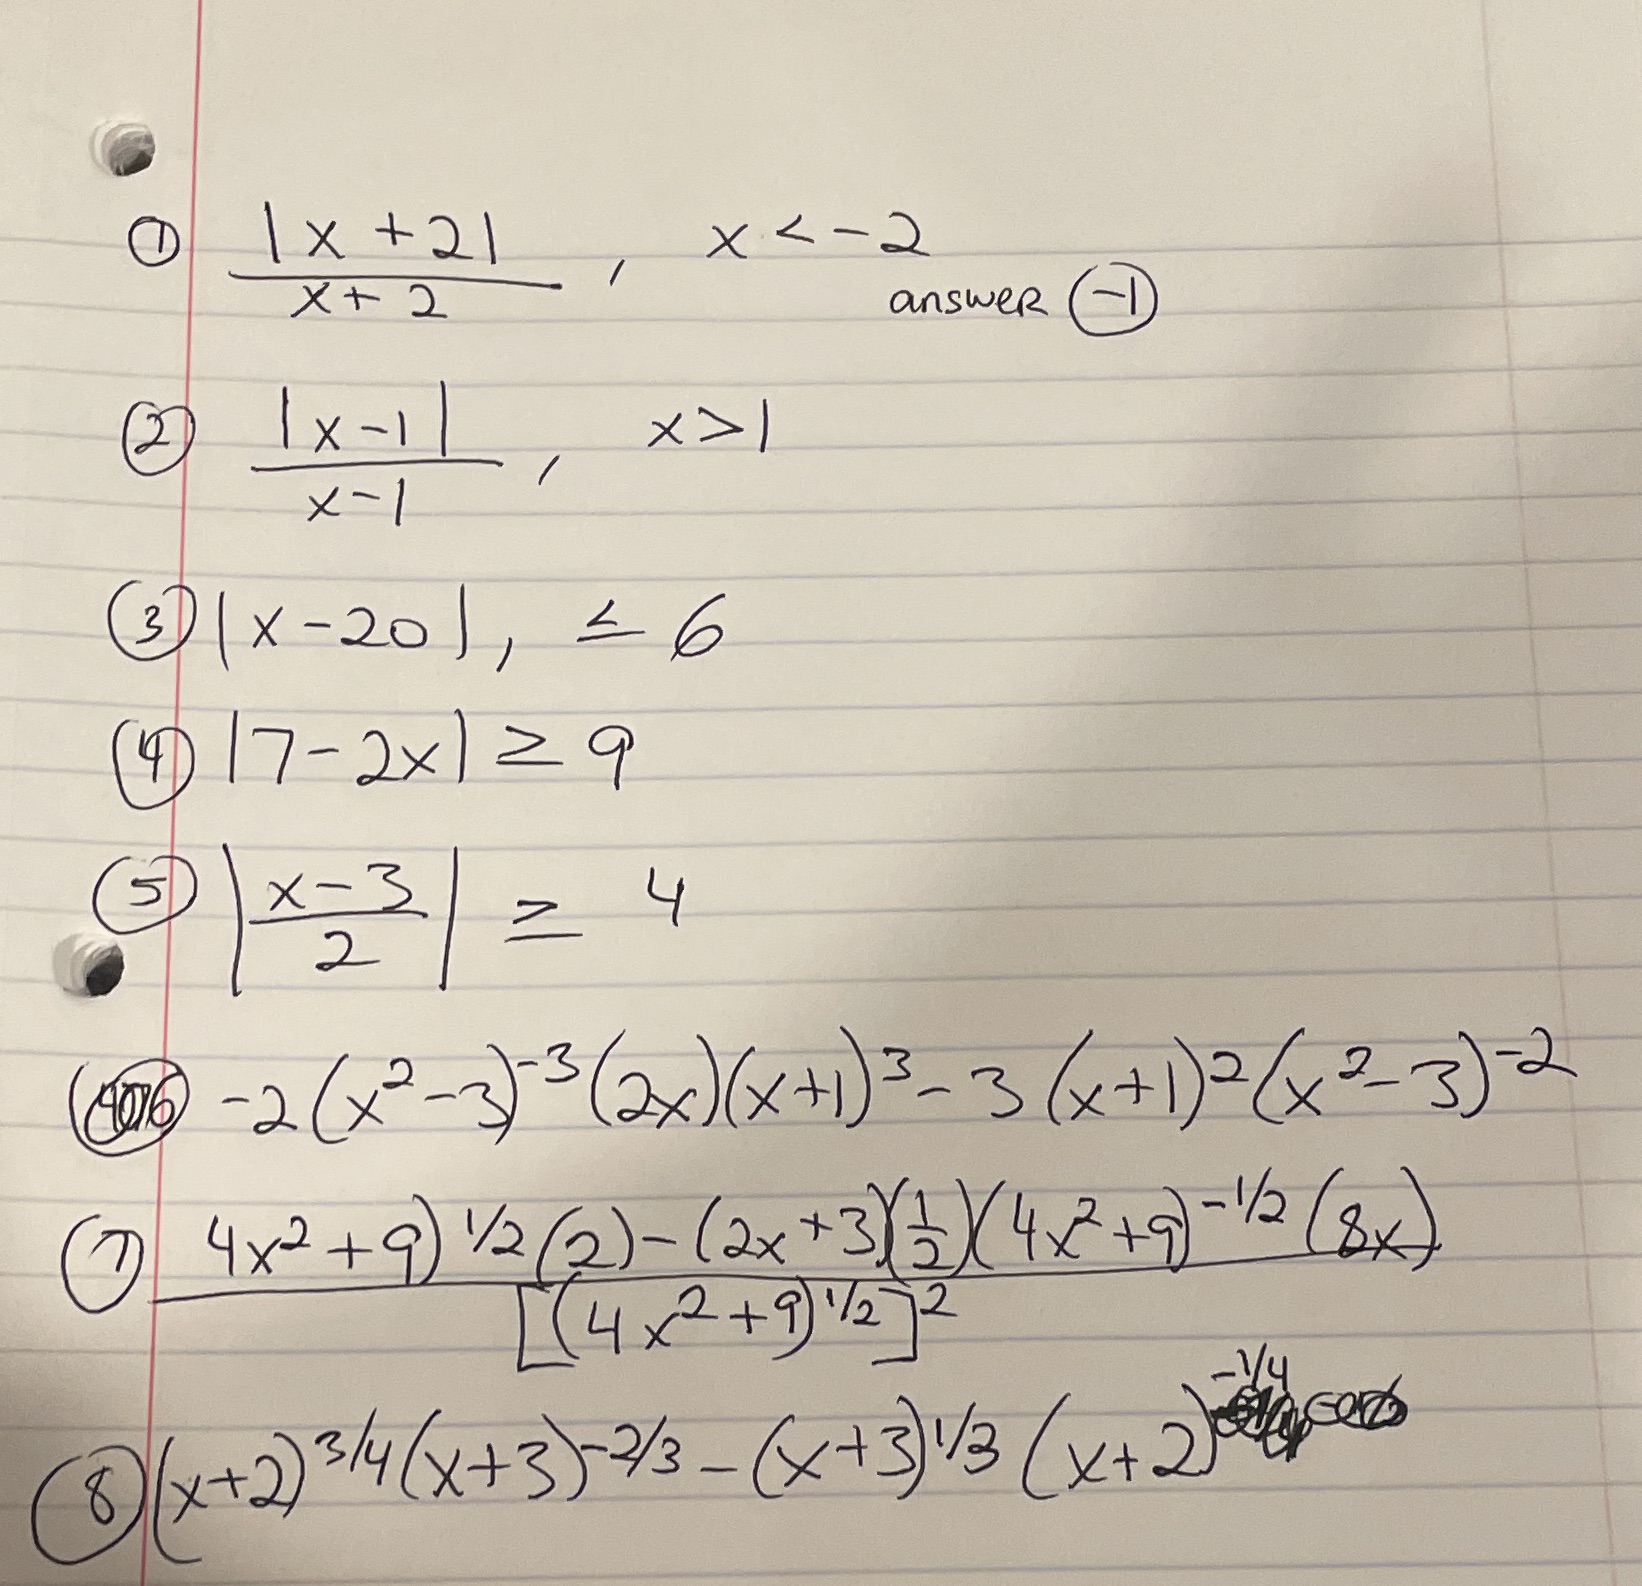 ① |x+2| / x+2 , x < -2
answer (-1)
② |x-1| / x-1 , x > 1
③ |x-20|, ≤ 6
④ |7-2x| ≥ 9
⑤ |x-3 / 2| ≥ 4
⑥ -2(x²-3)⁻³(2x)(x+1)³ - 3(x+1)²(x²-3)⁻²
⑦ 4x²+9)^1/2 (2) - (2x+3)(1/2)(4x²+9)^-1/2 (8x)
[(4x²+9)^1/2]²
⑧ (x+2)^3/4 (x+3)^-2/3 - (x+3)^1/3 (x+2)^-1/4